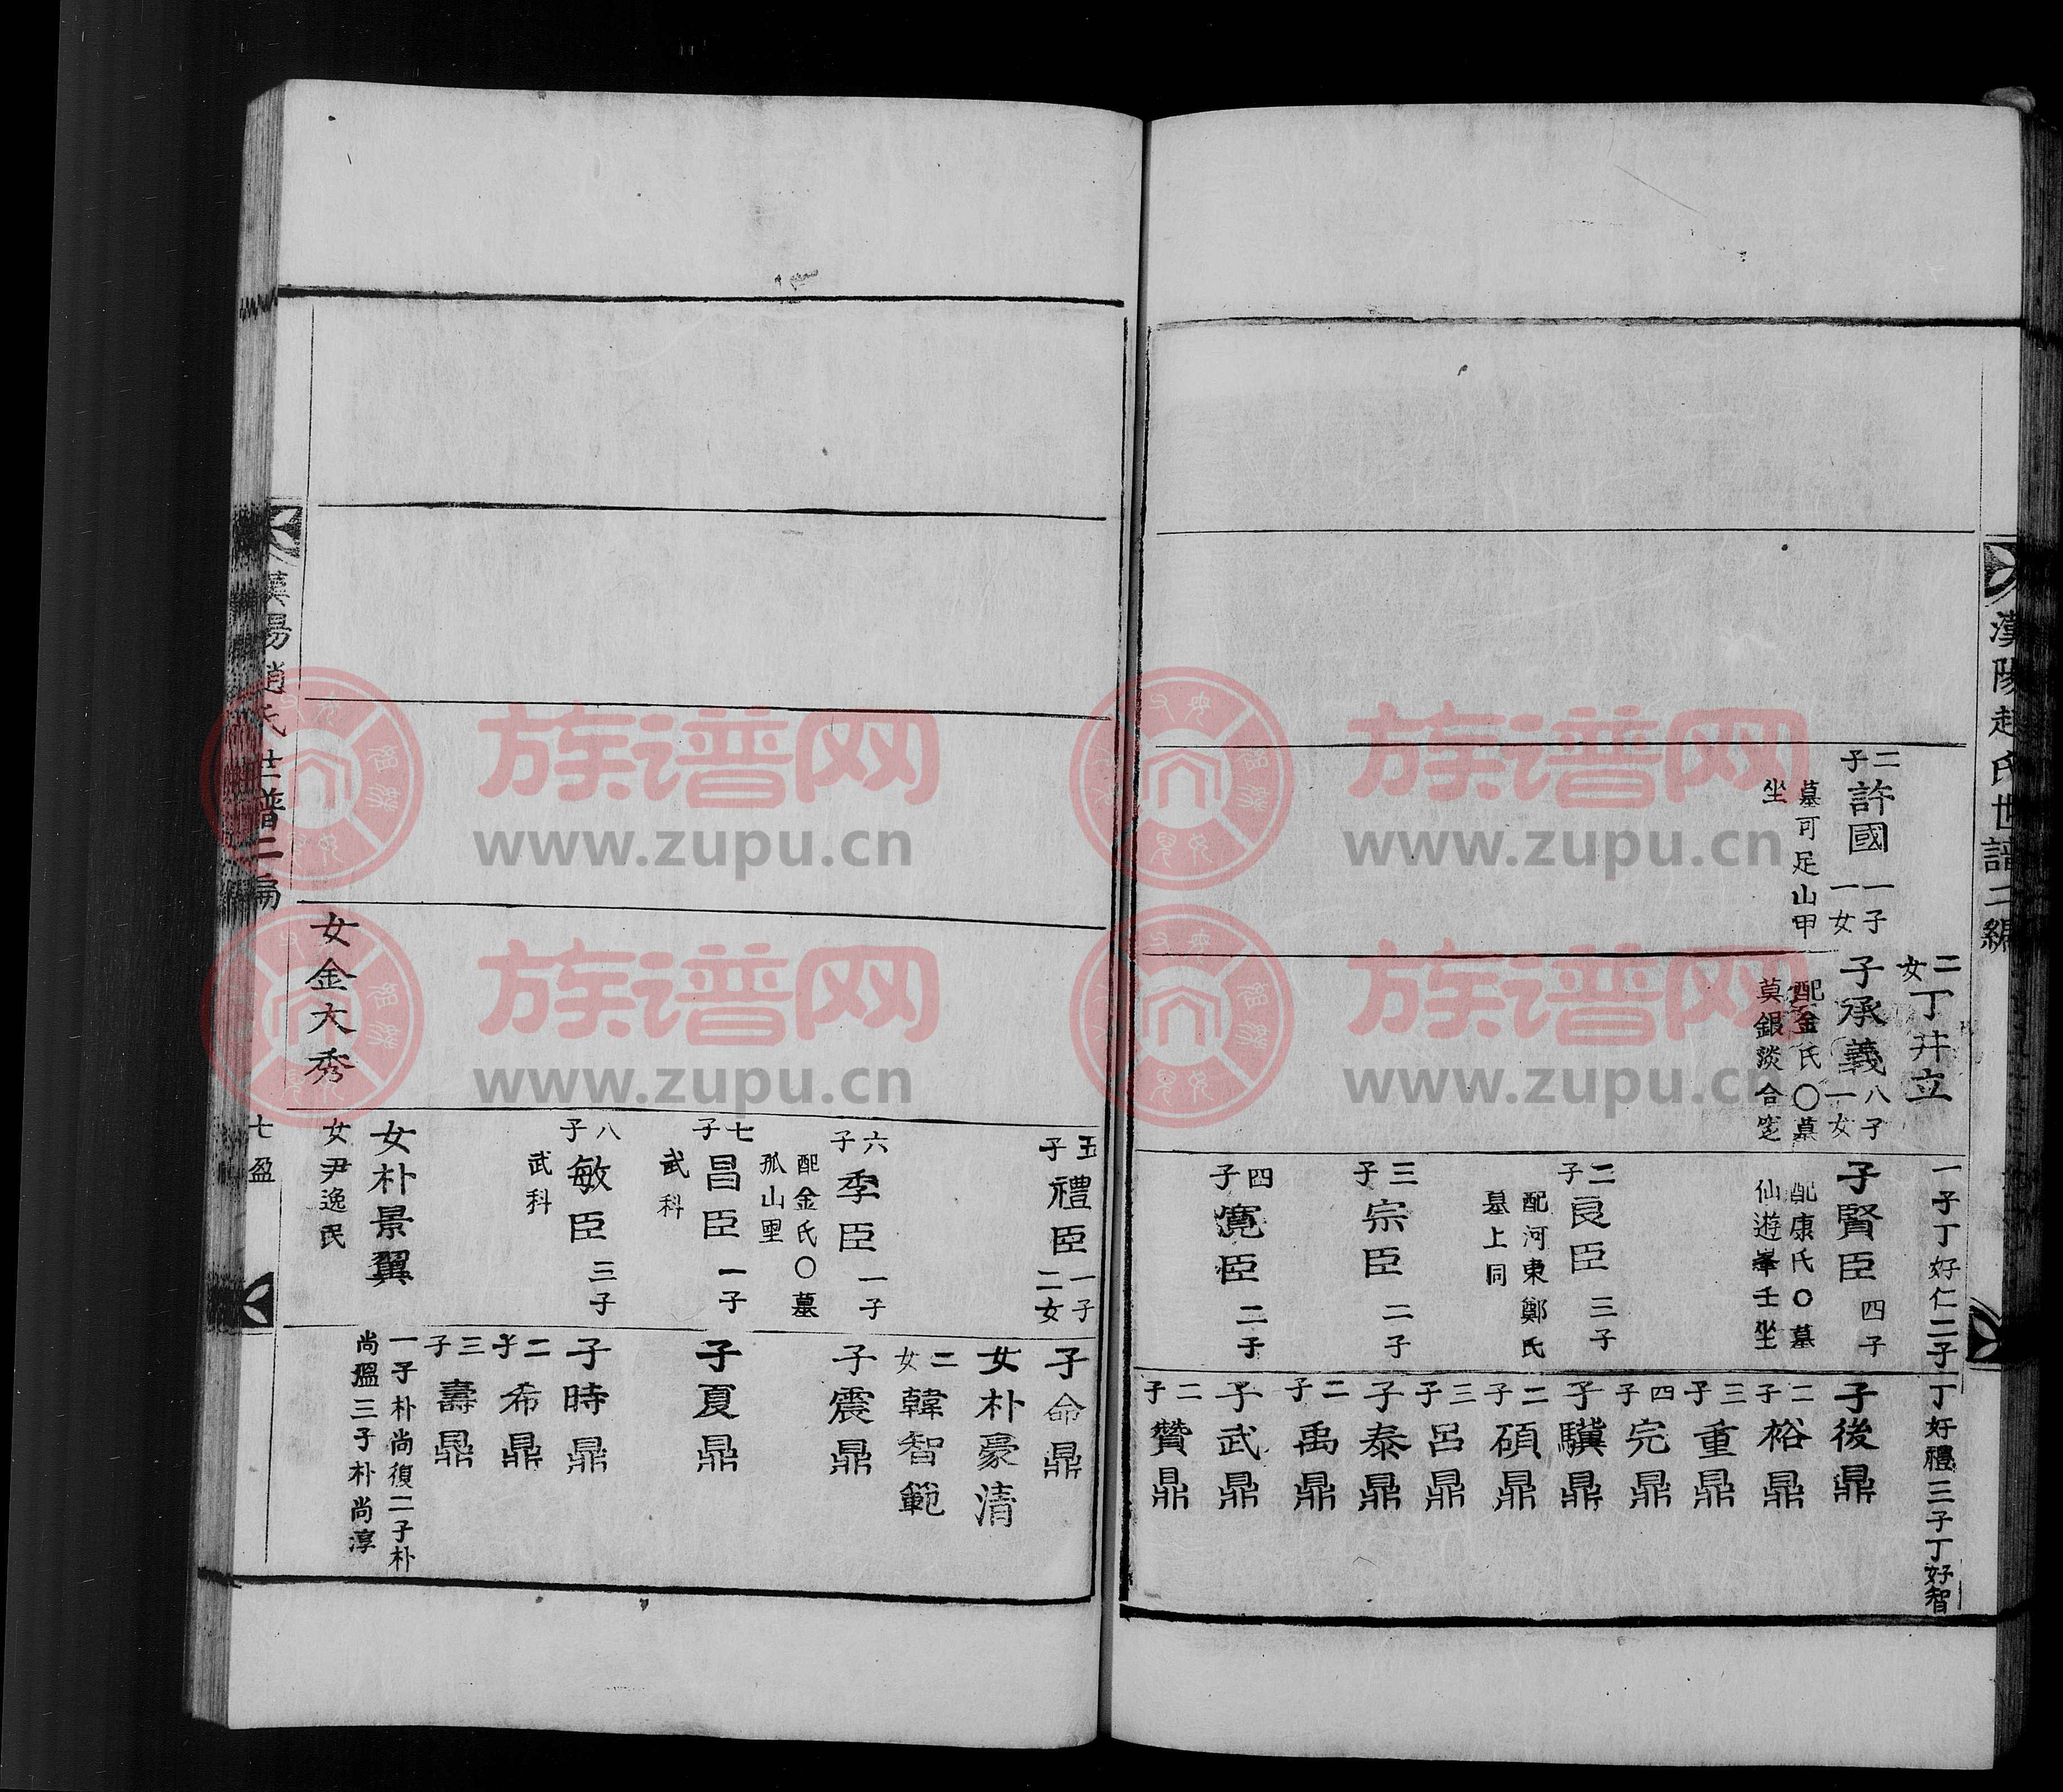 漢陽趙氏世譜二編
二子許國
一子
一女
墓可足山甲
坐
二女丁井立
子承義
八子
一女
配金氏○墓
莫銀淡合窆
一子丁好仁二子丁好禮三子丁好智
子賢臣
四子
配康氏○墓
仙遊峯壬坐
二子良臣
三子
配河東鄭氏
墓上同
三子宗臣
二子
四子寬臣
二子
子後鼎
二子裕鼎
三子重鼎
四子完鼎
子驥鼎
二子碩鼎
三子呂鼎
子泰鼎
二子禹鼎
子武鼎
二子贊鼎
五子禮臣
一子
二女
六子季臣
一子
配金氏○墓
孤山里
七子昌臣
一子
武科
八子敏臣
三子
武科
子命鼎
女朴豪清
二女韓智範
子震鼎
子夏鼎
子時鼎
二子希鼎
三子壽鼎
女金大秀
女朴景翼
一子朴尚復二子朴
尚瑥三子朴尚淳
女尹逸民
漢陽趙氏世譜二編
七
盈
族谱网
www.zupu.cn
族谱网
www.zupu.cn
族谱网
www.zupu.cn
族谱网
www.zupu.cn